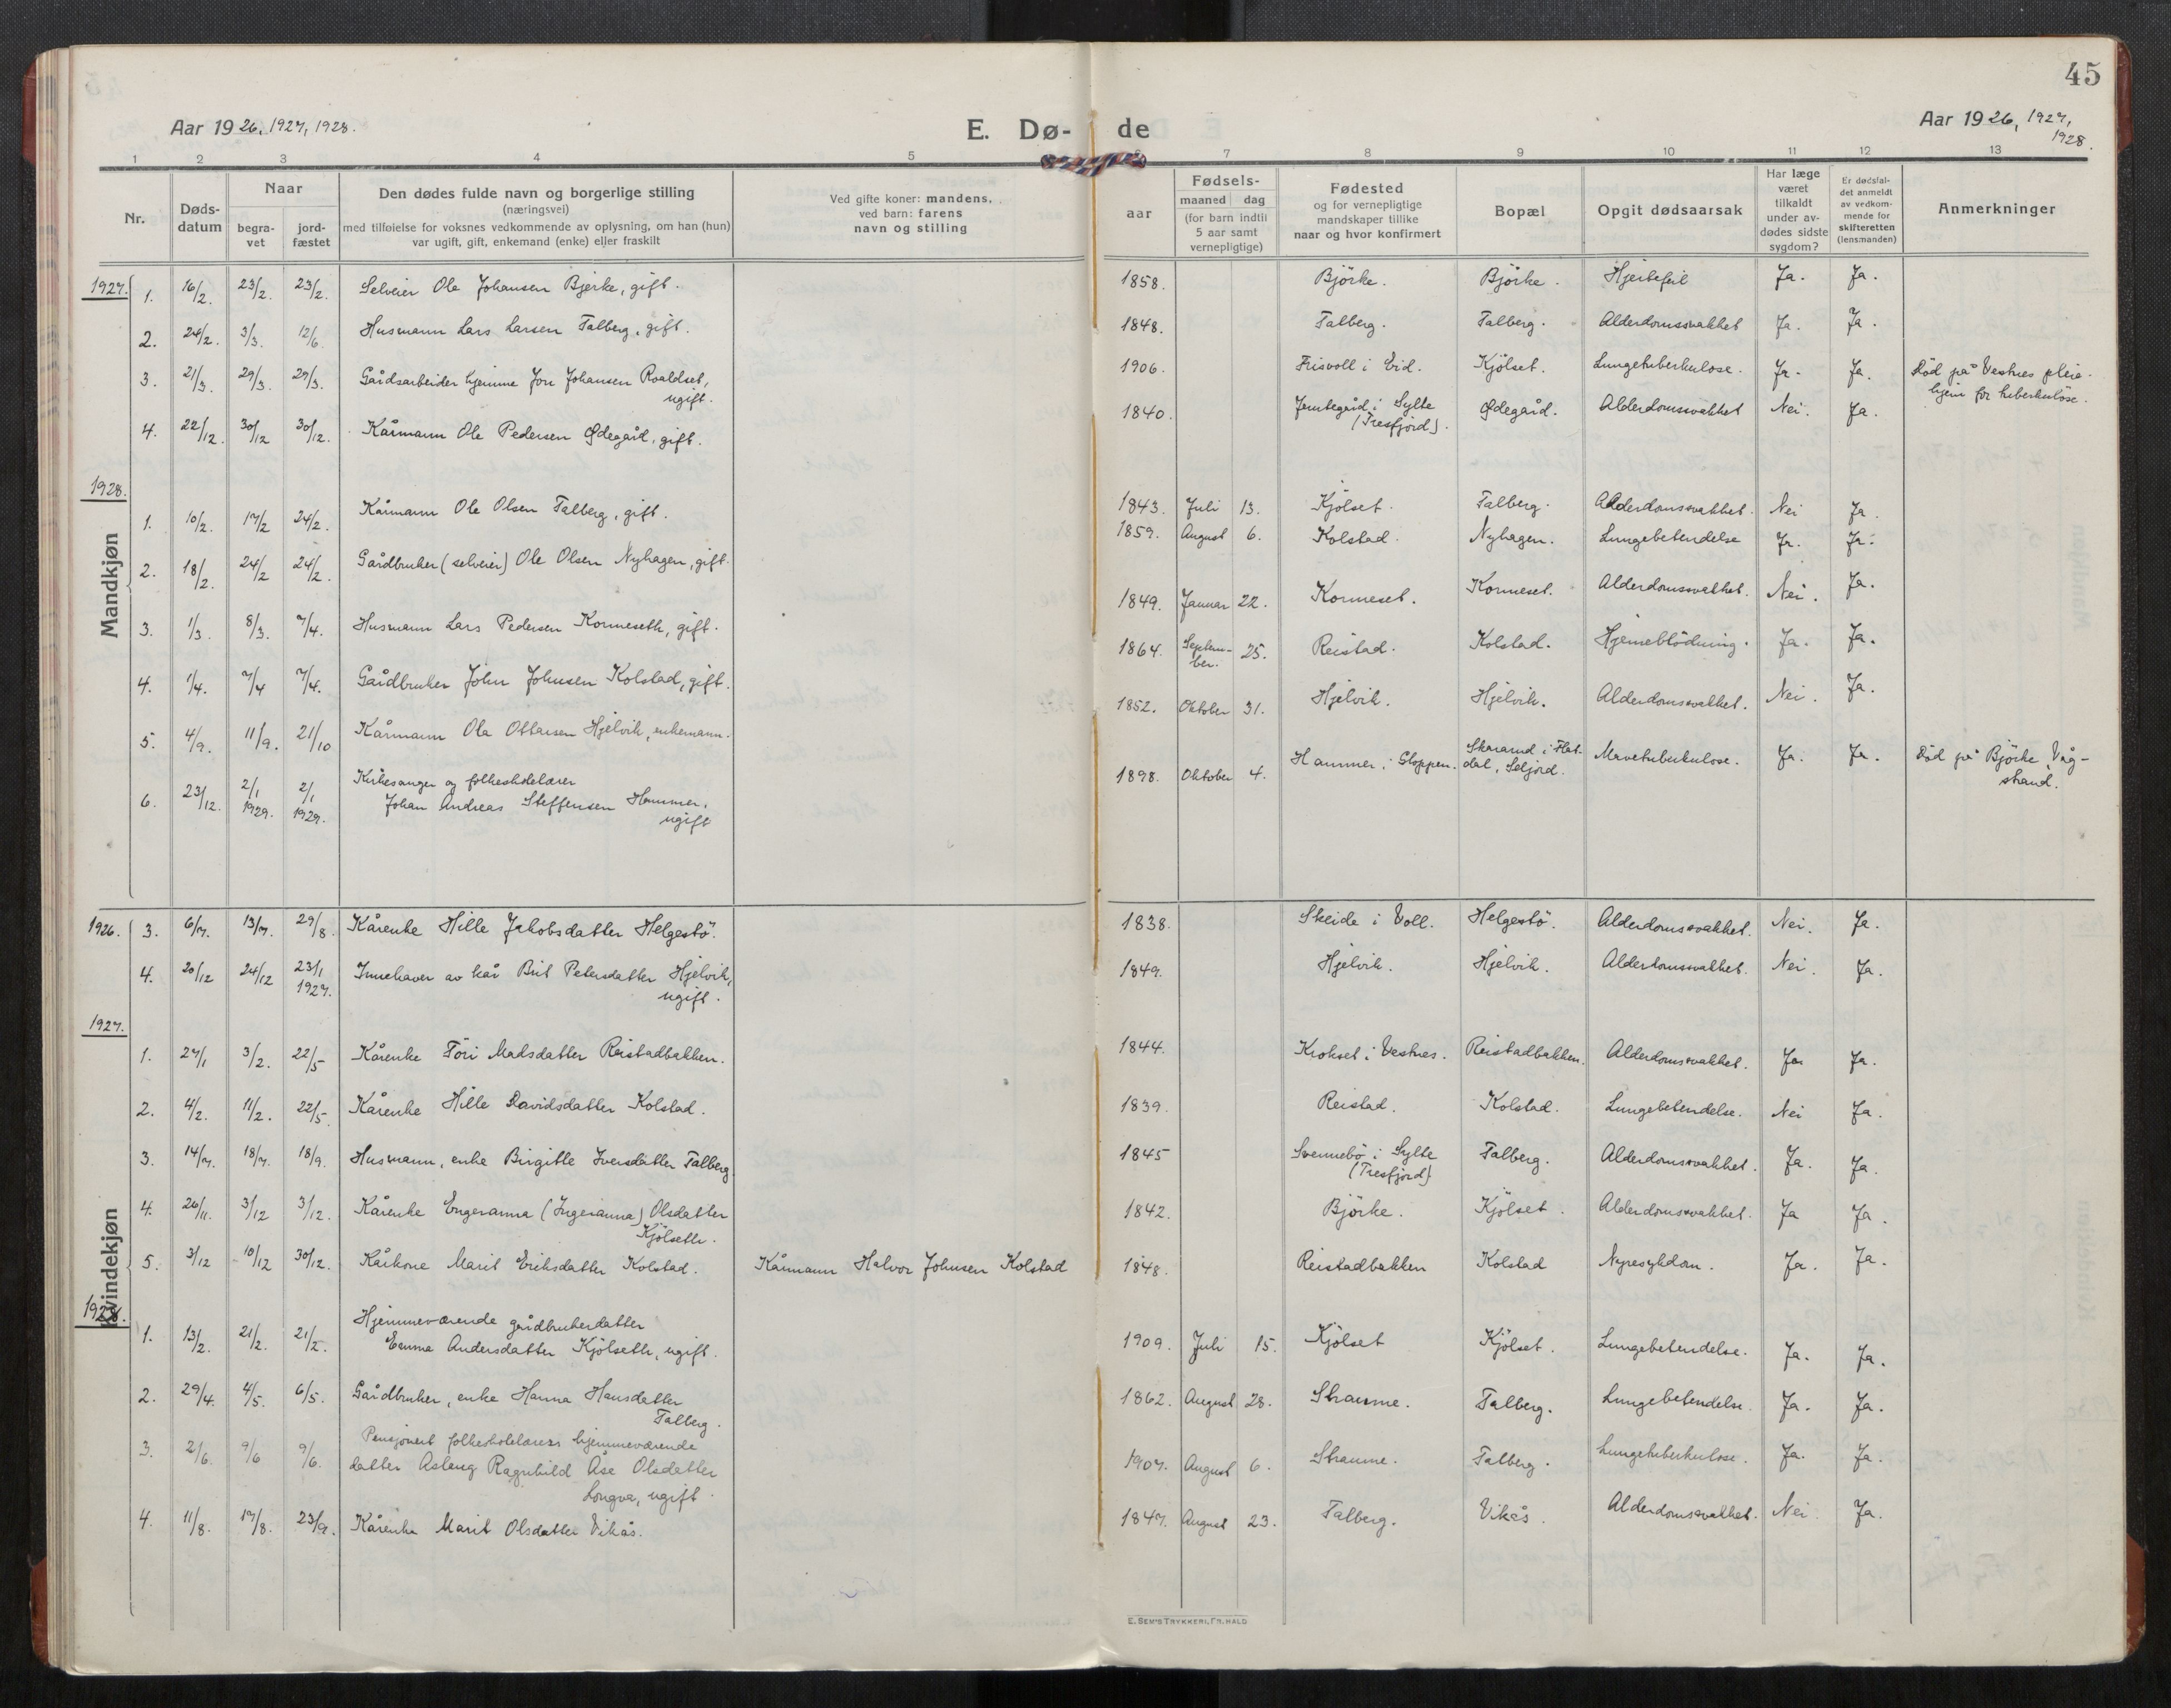 45
Aar 1926, 1927, 1928.
E. Dø- de
Aar 1926, 1927, 1928.
1 2 3 4 5 7 8 9 10 11 12 13
Nr.
Døds-datum
Naar
begra-vet
jord-fæstet
Den dødes fulde navn og borgerlige stilling
(næringsvei)
med tilføielse for voksnes vedkommende av oplysning, om han (hun)
var ugift, gift, enkemand (enke) eller fraskilt
Ved gifte koner: mandens,
ved barn: farens
navn og stilling
aar
Fødsels-
maaned dag
(for barn indtil
5 aar samt
vernepligtige)
Fødested
og for vernepligtige
mandskaper tillike
naar og hvor konfirmert
Bopæl
Opgit dødsaarsak
Har læge
været
tilkaldt
under av-
dødes sidste
sygdom?
Er dødsfal-
det anmeldt
av vedkom-
mende for
skifteretten
(lensmanden)
Anmerkninger
Mandkjøn
1927.
1. 16/2. 23/2. 23/2. Selveier Ole Johansen Bjerke, gift. 1858. Björke. Björke. Hjertefeil Ja. Ja.
2. 24/2. 3/3. 12/6. Husmann Lars Larsen Talberg, gift. 1848. Talberg. Talberg. Alderdomssvakhet Ja. Ja.
3. 21/3. 29/3. 29/3. Gårdsarbeider hjemme Jon Johansen Roaldset, ugift. 1906. Frisvoll i Eid. Kjölset. Lungetuberkulose. Ja. Ja. Död på Vestnes pleie-
hjem for tuberkulöse.
4. 22/12. 30/12 30/12. Kårmann Ole Pedersen Ødegård, gift. 1840. Jemtegård i Sylte (Tresfjord). Ødegård. Alderdomssvakhet Nei. Ja.
1928.
1. 10/2. 17/2 24/2. Kårmann Ole Olsen Talberg, gift. 1843. Juli 13. Kjölset. Talberg. Alderdomssvakhet. Nei Ja.
2. 18/2. 24/2 24/2. Gårdbruker (selveier) Ole Olsen Nyhagen, gift. 1859. August 6. Kolstad. Nyhagen. Lungebetendelse Ja. Ja.
3. 1/3. 8/3. 7/4. Husmann Lars Pedersen Kormeseth, gift. 1849. Januar 22. Kormeset. Kormeset. Alderdomssvakhet. Nei. Ja.
4. 1/4. 7/4 7/4. Gårdbruker John Johnsen Kolstad, gift. 1864. September. 25. Reistad. Kolstad. Hjerneblödning. Ja. Ja.
5. 4/9. 11/9. 21/10 Kårmann Ole Ottarsen Hjelvik, enkemann. 1852. Oktober 31. Hjelvik. Hjelvik. Alderdomssvakhet. Nei. Ja.
6. 23/12. 2/1 1929. 2/1 1929. Kirkesanger og folkeskolelærer
Johan Andreas Steffensen Hammer, ugift 1898. Oktober 4. Hammer i Gloppen. Skararud i Flat-dal, Seljord. Mavetuberkulose. Ja. Ja. Död på Björke, Våg-
strand.
Kvindekjøn
1926. 3. 6/7. 13/7. 29/8. Kårenke Hille Jakobsdatter Helgestö. 1838. Skeide i Voll. Helgestö. Alderdomssvakhet. Nei. Ja.
4. 20/12 24/12 23/1 1927. Innehaver av kår Brit Petersdatter Hjelvik, ugift. 1849. Hjelvik. Hjelvik. Alderdomssvakhet. Nei. Ja.
1927.
1. 27/1 3/2. 22/5 Kårenke Töri Madsdatter Reistadbakken. 1844. Krokset i Vestnes. Reistadbakken. Alderdomssvakhet. Ja Ja.
2. 4/2. 11/2. 22/5. Kårenke Hille Davidsdatter Kolstad. 1839. Reistad. Kolstad. Lungebetendelse. Nei Ja.
3. 14/7. 18/7. 18/9. Husmann, enke Birgitte Iversdatter Talberg 1845 Svennebö i Sylte (Tresfjord) Talberg. Alderdomssvakhet. Ja. Ja.
4. 26/11. 3/12 3/12. Kårenke Engeranna (Ingeranna) Olsdatter Kjölseth. 1842. Björke. Kjölset. Alderdomssvakhet. Ja Ja.
5. 3/12 10/12 30/12. Kårkone Marit Eriksdatter Kolstad. Kårmann Halvor Johnsen Kolstad 1848. Reistadbakken Kolstad Nyresykdom. Ja. Ja.
1928.
1. 13/2. 21/2. 21/2. Hjemmeværende gårdbrukerdatter
Emma Andersdatter Kjölseth, ugift. 1909. Juli 15. Kjölset Kjölset. Lungebetendelse. Ja. Ja.
2. 29/4. 4/5. 6/5. Gårdbruker, enke Hanna Hansdatter Talberg. 1862. August 28. Straume. Talberg. Lungebetendelse. Ja. Ja.
3. 2/6. 9/6 9/6. Pensjonert folkeskolelærers hjemmeværende
datter Aslaug Ragnhild Åse Olsdatter
Longva, ugift. 1907. August 6. Straume. Talberg. Lungetuberkulose. Ja. Ja.
4. 11/8. 17/8. 23/9. Kårenke Marit Olsdatter Vikås. 1847. August 23. Talberg. Vikås. Alderdomssvakhet. Nei. Ja.
E. SEM'S TRYKKERI, FR.HALD